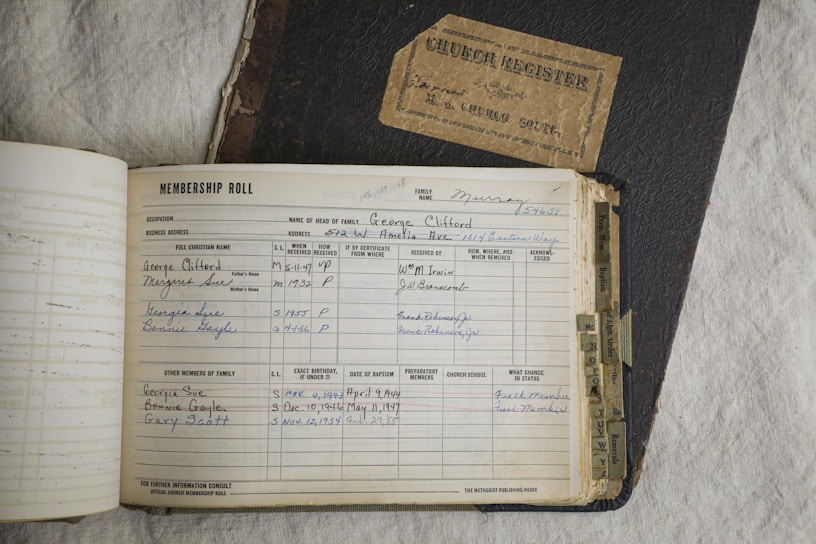 CHURCH REGISTER
M. E. CHURCH SOUTH.
MEMBERSHIP ROLL
FAMILY NAME Murray
54638
OCCUPATION NAME OF HEAD OF FAMILY George Clifford
BUSINESS ADDRESS ADDRESS 512 W. Amelia Ave. - 1014 Eastern Way
FULL CHRISTIAN NAME S.L. WHEN RECEIVED HOW RECEIVED IF BY CERTIFICATE FROM WHERE RECEIVED BY HOW, WHERE, AND WHEN REMOVED ACKNOWLEDGED
George Clifford M 5-11-47 VP Wm M Irwin
Father's Name
Margaret Sue M 1932 P J.D. Branscomb
Mother's Name
Georgia Sue S 1955 P Frank Robinson, Jr.
Bonnie Gayle S 4-1-56 P Frank Robinson, Jr.
OTHER MEMBERS OF FAMILY S.L. EXACT BIRTHDAY, IF UNDER 21 DATE OF BAPTISM PREPARATORY MEMBERS CHURCH SCHOOL WHAT CHANGE IN STATUS
Georgia Sue S Nov. 6, 1943 April 9, 1944 Full Member
Bonnie Gayle S Dec. 10, 1946 May 11, 1947 Full Member
Gary Scott S Nov. 15, 1954
FOR FURTHER INFORMATION CONSULT
OFFICIAL CHURCH MEMBERSHIP ROLL THE METHODIST PUBLISHING HOUSE
Baptism
Mc
N
O
P
Q
T
U
V
W
Y
Z
Removals